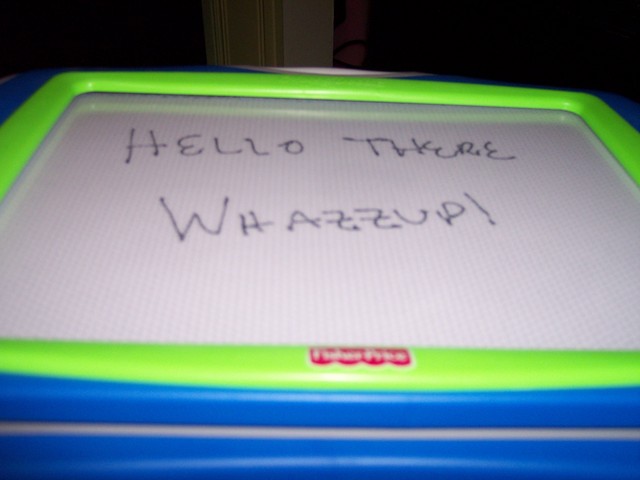 HELLO THERE
WHAZZUP!
Fisher-Price